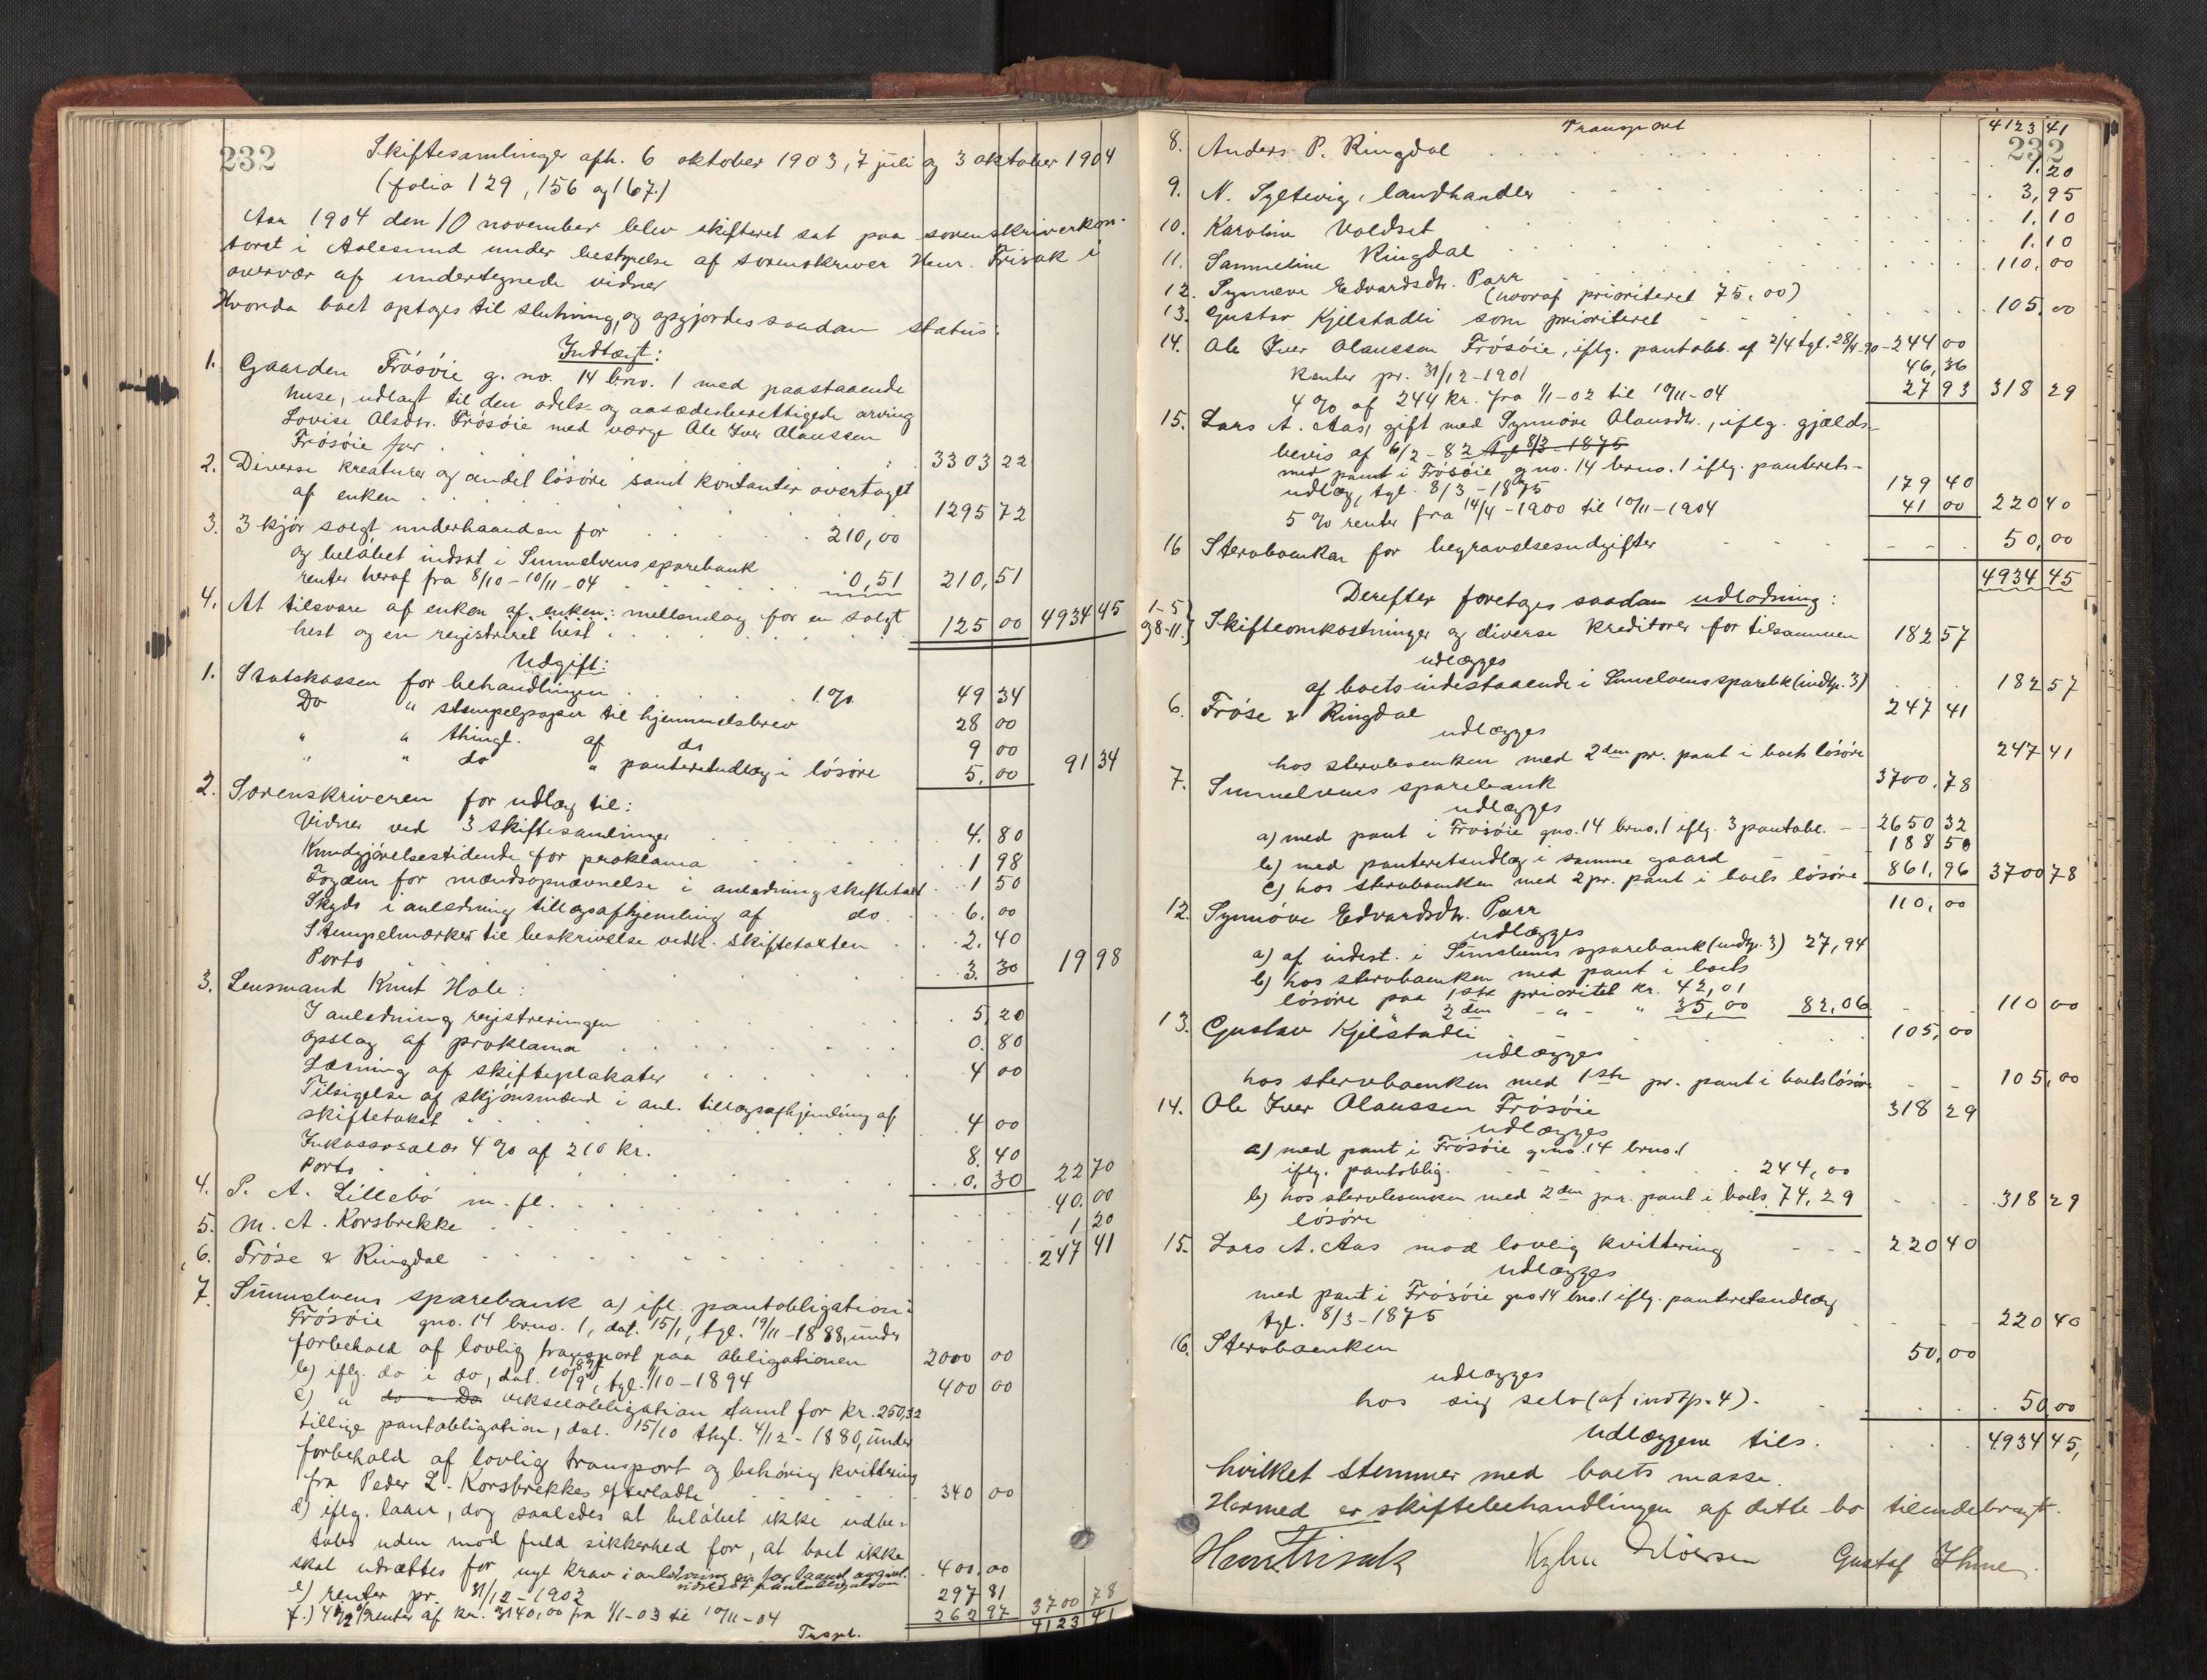 232
Skiftesamlinger afh. 6 oktober 1903, 7 juli og 3 oktober 1904
(folio 129, 156 og 167.)
Aar 1904 den 10 november blev skifteret sat paa sorenskriverkon-
toret i Aalesund under bestyrelse af sorenskriver Henr. Frisak i
overvær af undertegnede vidner
Hvorda boet optoges til slutning, og opgjordes saadan status:
Indtægt:
1. Gaarden Frøsøie g. no. 14 brno. 1 med paastaaende
huse, udlagt til den odels- og aasædesberettigede arving
Lovise Olsdtr. Frøsøie med værge Ole Iver Olaussen
Frøsøie for . 3303 22
2. Diverse kreaturer og andet løsøre samt kontanter overtaget
af enken . . . 1295 72
3. 3 kjør solgt underhaanden for . . . 210,00
og beløbet indsat i Sunnelvens sparebank
renter heraf fra 8/10 - 10/11 - 04 . . . 0,51 210,51
4. At tilsvare af enken af enken: mellemlag for en solgt
hest og en registreret hest . . . 125 00 4934 45
Udgift:
1. Statskassen for behandlingen . . . 1 % 49 34
Do " stempelpapir til hjemmelsbrev 28 00
" " thingl. af do 9 00
" " do " panteretsudlæg i løsøre 5,00 91 34
2. Sorenskriveren for udlæg til:
Vidner ved 3 skiftesamlinger . . . 4,80
Kundgjørelsestidende for proklama . . . 1 98
Fogden for mændsopnævnelse i anledning skiftetaxt . 1 50
Skyds i anledning tillægsafhjemling af do . . . 6,00
Stempelmærker til beskrivelse vedk. skiftetaxten . . 2,40
Porto . . . 3,30 19 98
3. Lensmand Knut Hole:
I anledning registreringen . . . 5,20
Opslag af proklama . . . 0,80
Læsning af skifteplakater . . . 4 00
Tilsigelse af skjønsmænd i anl. tillægsafhjemling af
skiftetakst . . . 4 00
Inkassosalær 4 % af 210 kr. 8,40
Porto . . . 0,30 22 70
4. P. A. Lillebø m. fl. . . . 40,00
5. M. A. Korsbrekke . . . 1 20
6. Frøse & Ringdal . . . 247 41
7. Sunnelvens sparebank a) ifl. pantobligation i
Frøsøie gno. 14 brno. 1, dat. 15/1, tgl. 19/11 - 1888, under
forbehold af lovlig transport paa obligationen 2000 00
b) iflg. do i do, dat. 10/9, tgl. 1/10 - 1894 400 00
c) " do " Do vekselobligation samt for kr. 250,32
tillige pantobligation, dat. 15/10 thgl. 4/12 - 1880, under
forbehold af lovlig transport og behørig kvittering
fra Peder L. Korsbrekkes efterladte . . . 340 00
d) iflg. laan, dog saaledes at beløbet ikke udbe-
tales uden mod fuld sikkerhed for, at boet ikke
skal udsættes for nyt krav i anledning en for laanet
udstedt pantobligation 400,00
e) renter pr. 31/12 - 1902 297 81
f.) 4 1/2 % renter af kr. 3140,00 fra 1/1 - 03 til 10/11 - 04 262 97 3700 78
Trspt. 4123 41
Transport 4123 41
232
8. Anders P. Ringdal . . . 1,20
9. N. Syltevig, landhandler . . . 3,95
10. Karoline Voldset . . . 1.10
11. Sammeline Ringdal . . . 1.10
12. Synnøve Edvardsdtr. Parr . . . 110,00
(hvoraf prioriteret 75,00)
13. Gustav Kjelstadli som prioriteret . . . 105,00
14. Ole Iver Olaussen Frøsøie, iflg. pantobl. af 2/4 tgl. 28/4-90 - 244 00
Renter pr. 31/12 - 1901 46,36
4 % af 244 kr. fra 1/1 - 02 til 10/11 - 04 27 93 318 29
15. Lars A. Aas, gift med Synnøve Olausdtr., iflg. gjælds-
bevis af 6/2 - 82 tgl 8/3 - 1875
med pant i Frøsøie gno. 14 brno. 1 iflg. panterets-
udlæg, tgl. 8/3 - 1875 179 40
5 % renter fra 14/4 - 1900 til 10/11 - 1904 41 00 220 40
16 Stervboenken for begravelsesudgifter - - - 50,00
4934 45
Derefter foretoges saadan udlodning:
1-5 og 8-11.} Skifteomkostninger og diverse kreditorer for tilsammen 182 57
udlægges
af boets indestaaende i Sunnelvens sparebk (indtp. 3) . . . 182 57
6. Frøse & Ringdal 247 41
udlægges
hos stervboenken med 2den pr. pant i boets løsøre 247 41
7. Sunnelvens sparebank 3700,78
udlægges
a) med pant i Frøsøie gno. 14 brno. 1 iflg. 3 pantobl. - - 2650 32
b) med panteretsudlæg i samme gaard - 188 50
c) hos stervboenken med 2 pr. pant i boets løsøre 861,96 3700 78
12. Synnøve Edvardsdtr. Parr 110,00
udlægges
a) af indest. i Sunnelvens sparebank (indtp. 3) 27,94
b) hos stervboenken med pant i boets
løsøre paa 1ste prioritet kr. 42,01
2den - " - " 35,00 82,06 - - 110 00
13. Gustav Kjelstadli 105,00
udlægges
hos stervboenken med 1ste pr. pant i boets løsøre - - 105,00
14. Ole Iver Olaussen Frøsøie 318 29
udlægges
a) med pant i Frøsøie g.no. 14 brno. 1
iflg. pantoblig. . . . 244,00
b) hos stervboenken med 2den pr. pant i boets 74,29 . . . 318 29
løsøre
15. Lars A. Aas mod lovlig kvittering - - - 220 40
udlægges
med pant i Frøsøie gno 14 bno. 1 iflg. panteretsudlæg
tgl. 8/3 - 1875 - - - 220 40
16. Stervboenken 50,00
udlægges
hos sig selv (af indtp. 4). . . . 50,00
udlæggene tils. . . . 4934 45,
hvilket stemmer med boets masse.
Hermed er skiftebehandlingen af dette bo tilendebragt.
Henr Frisak Gustaf Ihme